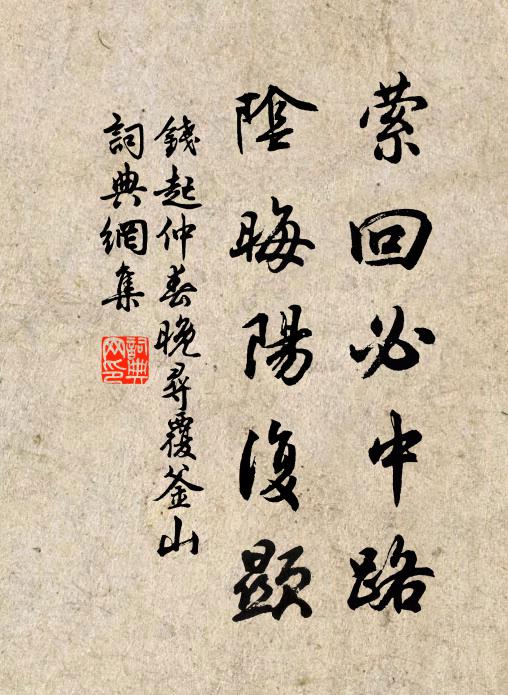 萦回必中路
陰晦陽復顯
錢起仲春晚尋覆釜山
詞典網集
詞典
网印